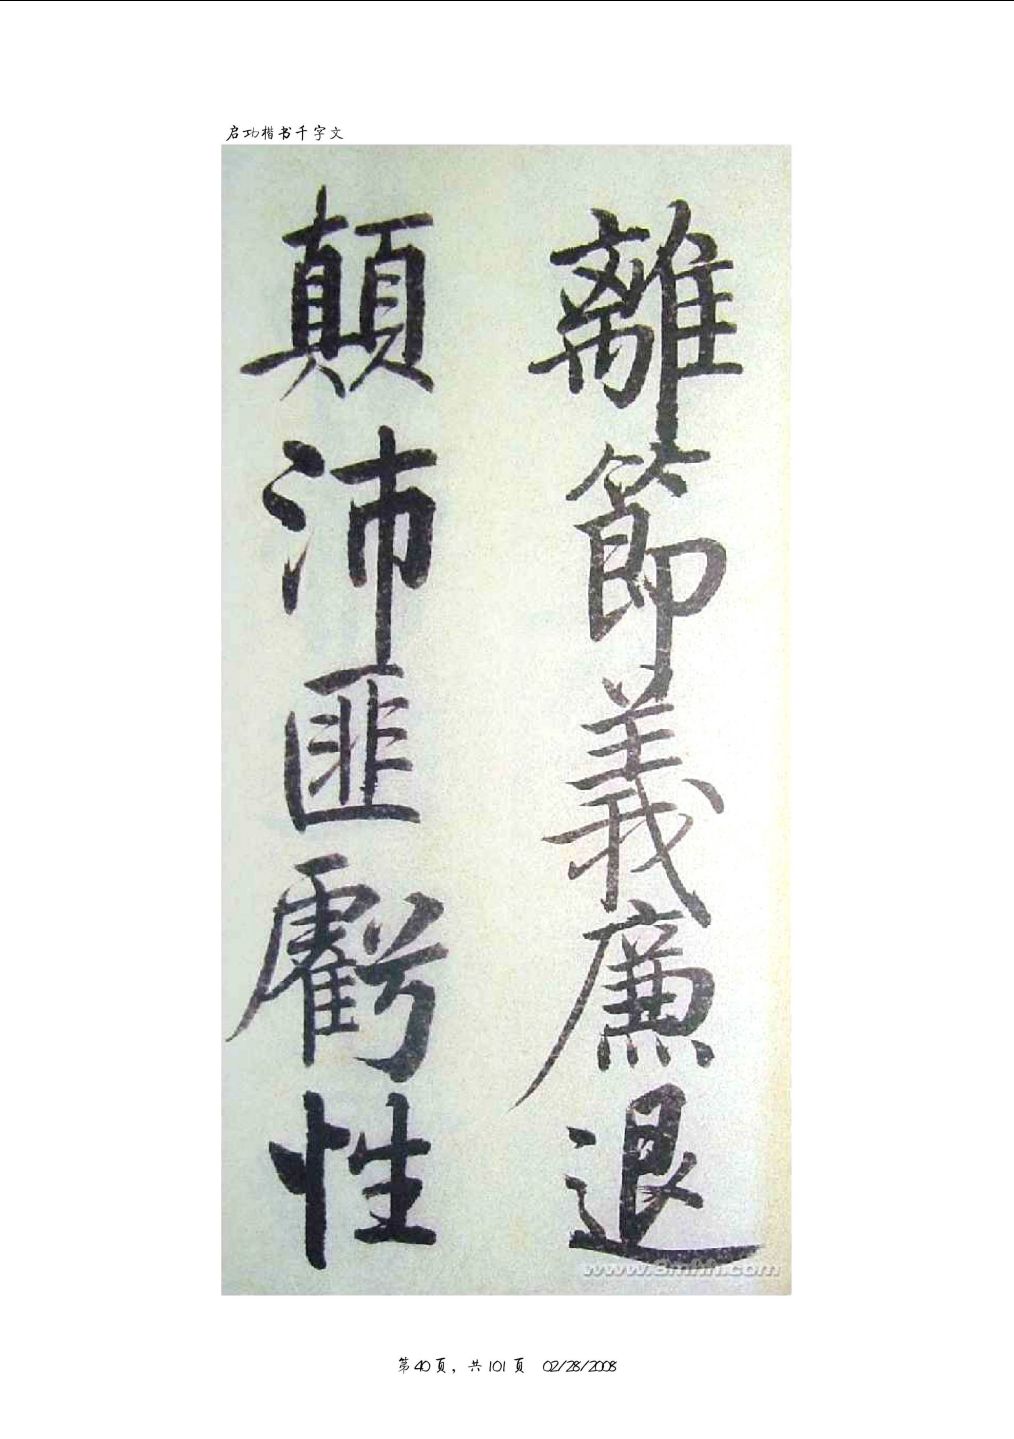 启功楷书千字文
離節義廉退
顛沛匪虧性
第40页，共101页 02/28/2008